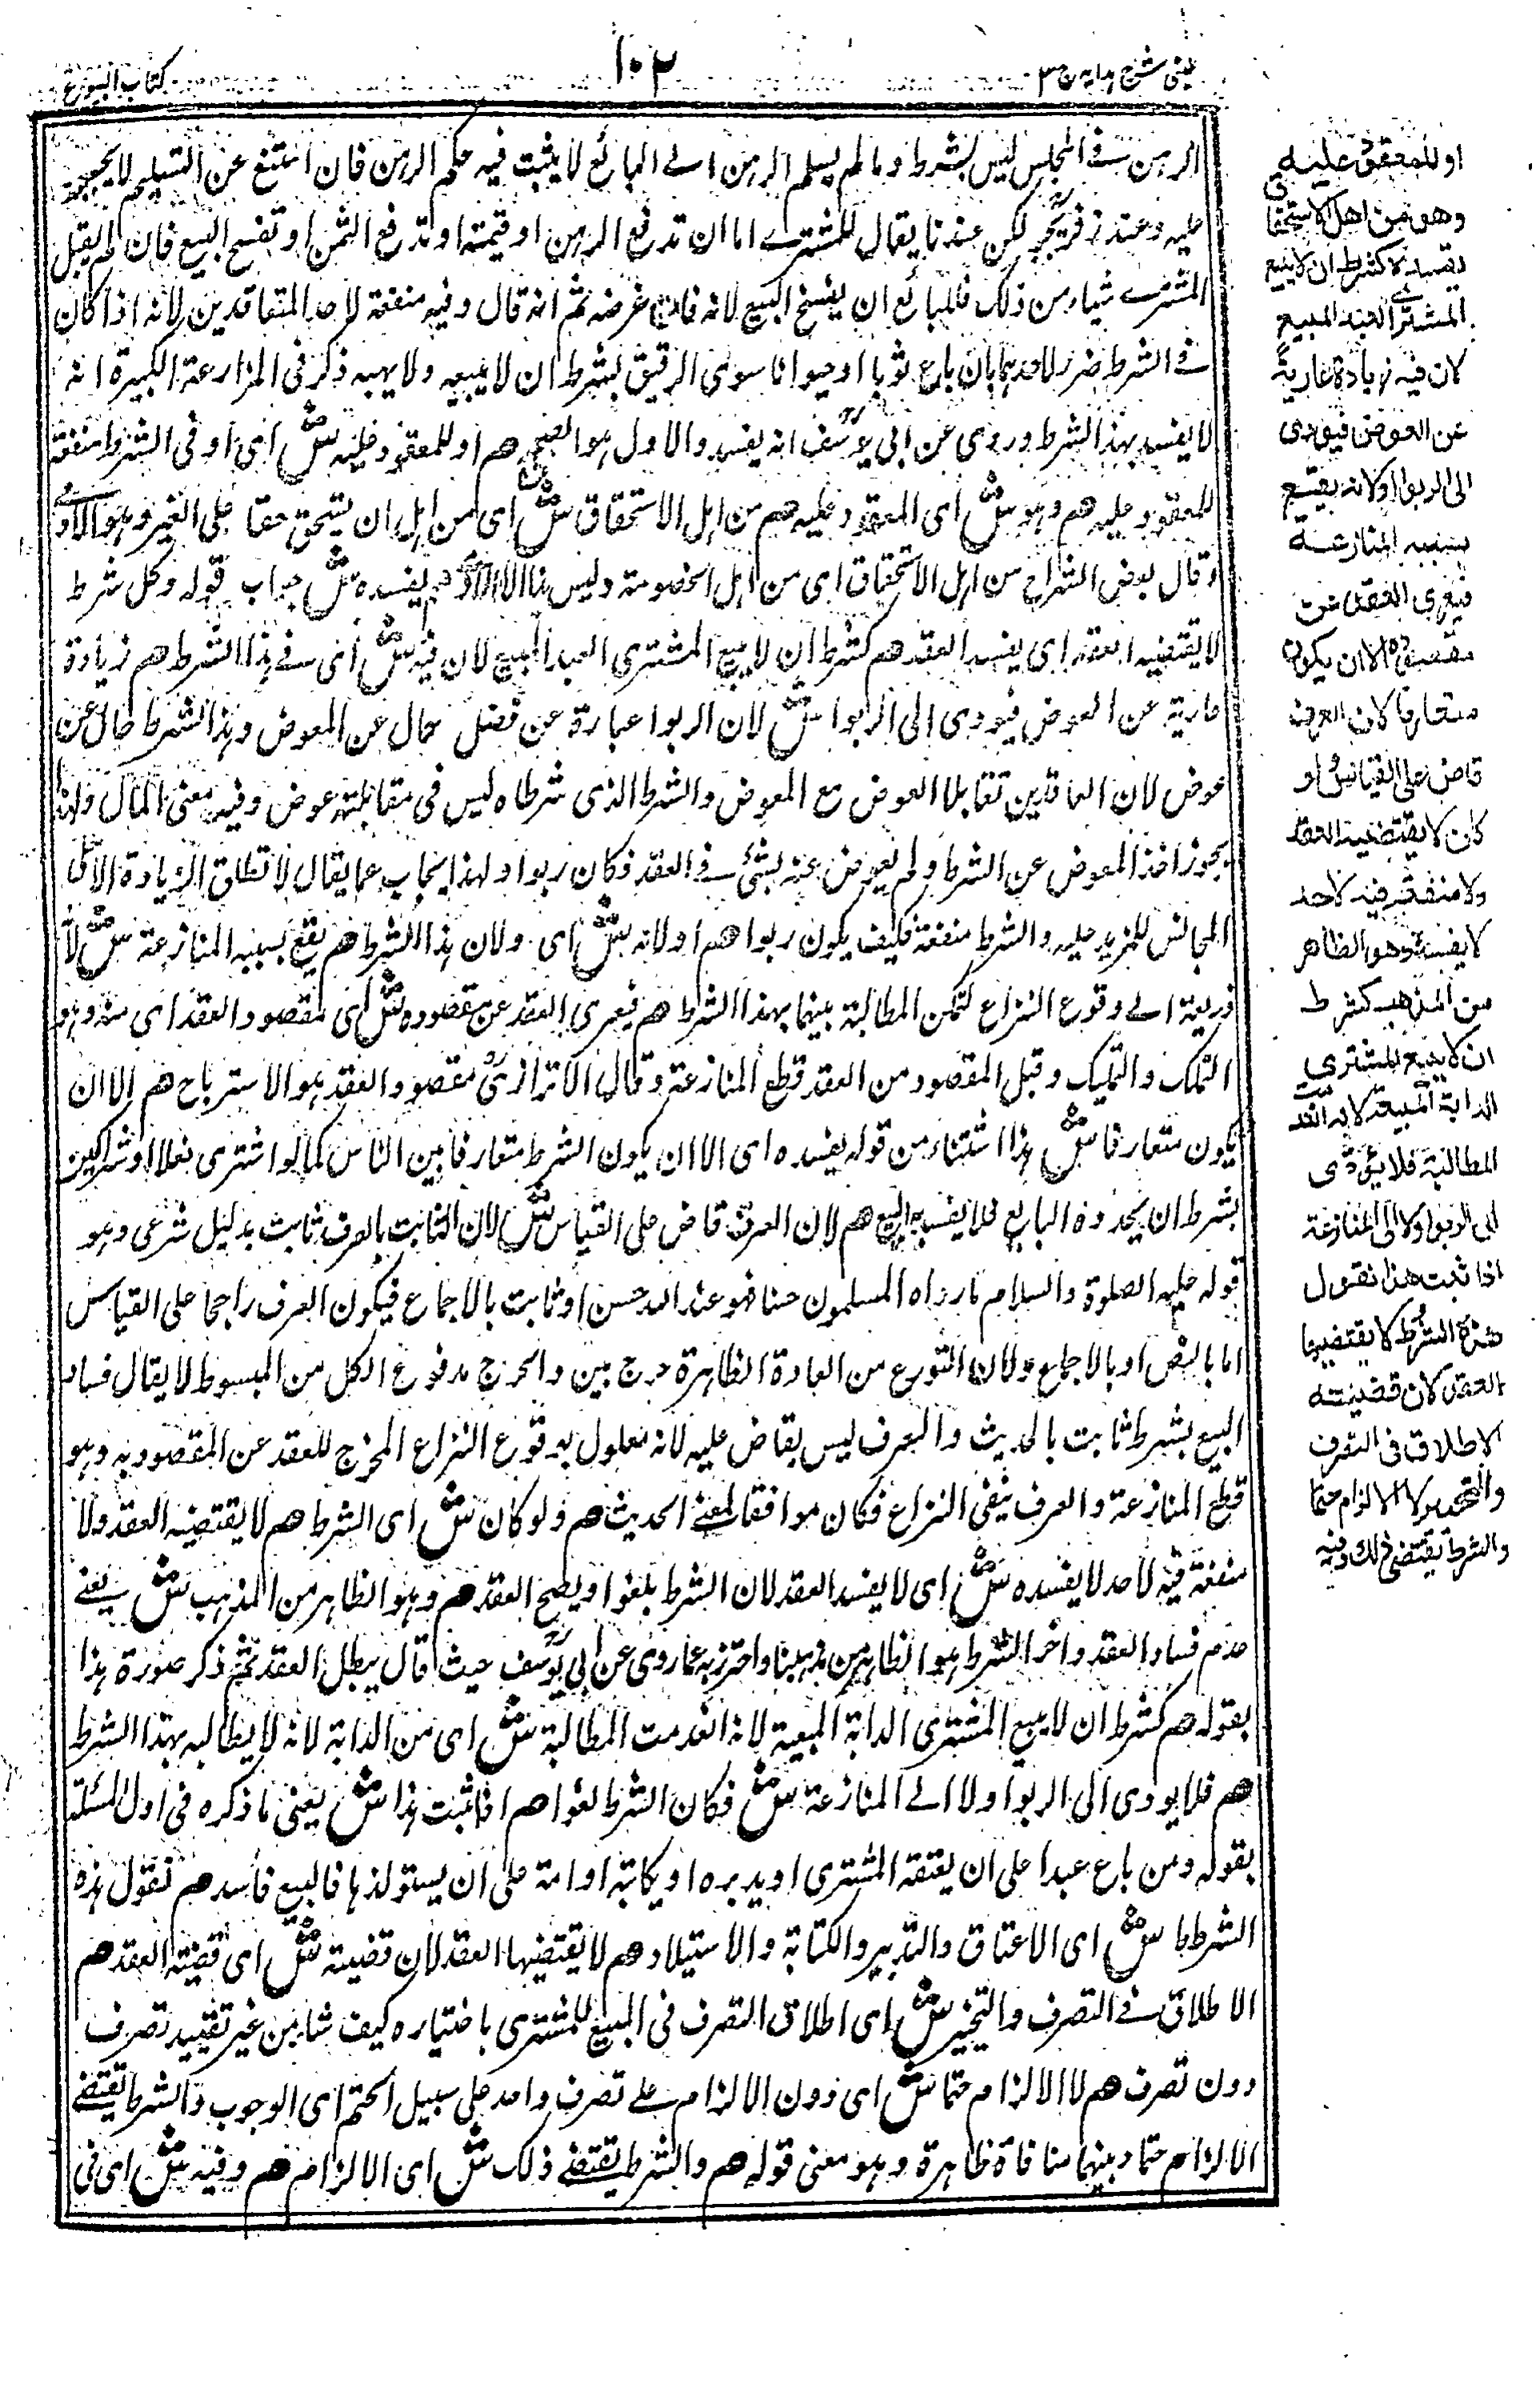 عینی شرح ہدایہ ج ٣
١٠٢
کتاب البیوع
الرہن فے المجلس لیس بشرط و ما لم یسلم الرہن الے البائع لا یثبت فیہ حکم الرہن فان امتنع عن التسلیم لا یجبر
علیہ و عند زفر یجبر لکن عندنا یقال للمشترے اما ان تدفع الرہن او قیمتہ او تدفع الثمن او تفسخ البیع فان لم یقبل
المشترے شیاء من ذلک فللبائع ان یفسخ البیع لانہ فات غرضہ ثم انہ قال و فیہ منفعة لاحد المتعاقدین لانہ اذا کان
فے الشرط ضرر لاحدہما بان باع ثوبا او حیوانا سوی الرقیق بشرط ان لا یبیعہ و لا یہبہ ذکر فی المزارعة الکبیرة انہ
لا یفسد بہذا الشرط و روی عن ابی یوسف انہ یفسد و الاول ہو الصحیح ھم او للمعقود علیہ ش ای او فی الشرط منفعة
للمعقود علیہ ھم و ہو ش ای المعقود علیہ ھم من اہل الاستحقاق ش ای من اہل ان یستحق حقا علی الغیر و ہو الآدمی
و قال بعض الشراح من اہل الاستحقاق ای من اہل الخصومة و لیس ہذا الا الآدمی ھم یفسدہ ش جواب قولہ و کل شرط
لا یقتضیہ العقد ای یفسد العقد ھم کشرط ان لا یبیع المشتری العبد المبیع لان فیہ ش ای فے ہذا الشرط ھم زیادة
عاریة عن العوض فیودی الی الربوا ش لان الربوا عبارة عن فضل خال عن العوض و ہذا الشرط خال عن
عوض لان العاقدین تقابلا العوض مع المعوض و الشرط الذی شرطاہ لیس فی مقابلتہ عوض و فیہ معنی المال و لہذا
یجوز اخذ العوض عن الشرط و لم یعوض عنہ بشئی فے العقد فکان ربوا و لہذا یجاب عما یقال لا تطلق الزیادة الا علی
المجانس للمزید علیہ و الشرط منفعة فکیف یکون ربوا ھم او لانہ ش ای و لان ہذا الشرط ھم یقع بسببہ المنازعة ش لانہ
ذریعة الے وقوع النزاع لتمکن المطالبة بینہما بہذا الشرط ھم فیعری العقد عن مقصودہ ش ای مقصود العقد ای منہ و ہو
التملک و التملیک و قبل المقصود من العقد قطع المنازعة و قال الاترازی مقصود العقد ہو الاسترباح ھم الا ان
یکون متعارفا ش ہذا استثناء من قولہ یفسدہ ای الا ان یکون الشرط متعارفا بین الناس کما لو اشتری نعلا او شراکین
بشرط ان یحذوہ البایع فلا یفسد بہ البیع ھم لان العرف قاض علی القیاس ش لان الثابت بالعرف ثابت بدلیل شرعی و ہو
قولہ علیہ الصلوة و السلام ما راہ المسلمون حسنا فہو عند اللہ حسن او ثابت بالاجماع فیکون العرف راجحا علی القیاس
اما بالنص او بالاجماع و لان التورع من العادة الظاہرة حرج بین و الحرج مدفوع الکل من المبسوط لا یقال فساد
البیع بشرط ثابت بالحدیث و العرف لیس بقاض علیہ لانہ معلول بوقوع النزاع المخرج للعقد عن المقصود بہ و ہو
قطع المنازعة و العرف ینفی النزاع فکان موافقا لمعنے الحدیث ھم و لو کان ش ای الشرط ھم لا یقتضیہ العقد و لا
منفعة فیہ لاحد لا یفسدہ ش ای لا یفسد العقد لان الشرط یلغو او یصح العقد ھم و ہو الظاہر من المذہب ش یعنے
عدم فساد العقد و اخر الشرط ہو الظاہر من مذہبنا و احترز بہ عما روی عن ابی یوسف حیث قال یبطل العقد ثم ذکر صورة ہذا
بقولہ ھم کشرط ان لا یبیع المشتری الدابة المبیعة لانہ انعدمت المطالبة ش ای من الدابة لانہ لا یطالبہ بہذا الشرط
ھم فلا یودی الی الربوا و لا الے المنازعة ش فکان الشرط لغوا ھم اذا ثبت ہذا ش یعنی ما ذکرہ فی اول المسئلة
بقولہ و من باع عبدا علی ان یعتقہ المشتری او یدبرہ او یکاتبہ او امة علی ان یستولدہا فالبیع فاسد ھم نقول ہذہ
الشرط ما ش ای الاعتاق و التدبیر و الکتابة و الاستیلاد ھم لا یقتضیہا العقد لان قضیتہ ش ای قضیة العقد ھم
الاطلاق فے التصرف و التخییر ش ای اطلاق التصرف فی المبیع للمشتری باختیارہ کیف شاء من غیر تقیید تصرف
دون تصرف ھم لا الالزام حتما ش ای دون الالزام علے تصرف واحد علی سبیل الحتم ای الوجوب و الشرط یقتضے
الالزام حتما و بینہما منافاة ظاہرة و ہو معنی قولہ ھم و الشرط یقتضے ذلک ش ای الالزام ھم و فیہ ش ای فی
او للمعقود علیہ
وھو من اھل الاستحقاق
یفسدہ کشرط ان لا یبیع
المشتری العبد المبیع
لان فیہ زیادة عاریة
عن العوض فیودی
الی الربوا او لانہ یقع
بسببہ المنازعة
فیعری العقد عن
مقصودہ الا ان یکون
متعارفا لان العرف
قاض علی القیاس و لو
کان لا یقتضیہ العقد
ولا منفعة فیہ لاحد
لا یفسدہ وھو الظاھر
من المذھب کشرط
ان لا یبیع المشتری
الدابة المبیعة لانہ انعدمت
المطالبة فلا یؤدی
الی الربوا ولا الی المنازعة
اذا ثبت ھذا نقول
ھذہ الشروط لا یقتضیہا
العقد لان قضیتہ
الاطلاق فی التصرف
والتخییر لا الالزام حتما
والشرط یقتضی ذلک وفیہ